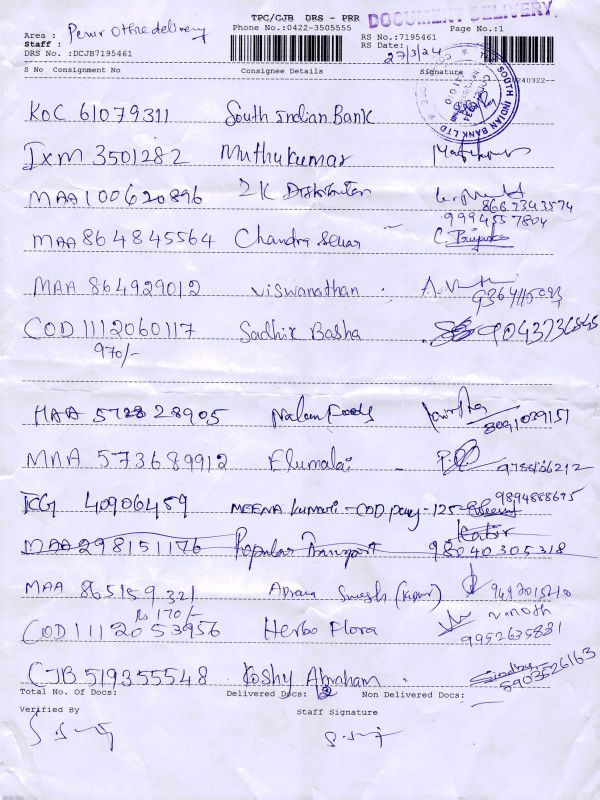 TPC/CJB DRS - PRR DOCUMENT DELIVERY
Area : Perur Office delivery Phone No.:0422-3505555 RS No.:7195461 Page No.:1
Staff : RS Date:
DRS No. :DCJB7195461 27/3/24
S No Consignment No Consignee Details Signature
SOUTH INDIAN BANK LTD
KOC 61079311 South Indian Bank
IXM 3501282 Muthukumar
MAA 100620896 2K Distributon 8667343574
9994557804
MAA 864845564 Chandra Sekar C. Priyanka
MAA 864929012 Viswanathan
COD 1112060117 Sadhik Basha
970/-
MAA 572828905 Nalam foods 8091039151
MAA 573689912 Elumalai
TCG 40906459 MEENA kumari - COD pay - 125 9894888675
MAA 298151176 Popular Transport Kabir 98040305318
MAA 865159321
Rs 170/-
COD 1112053956 Herbo Flora Vinoth 9952635881
CJB 519355548 Koshy Abraham 5903526163
Total No. Of Docs: Delivered Docs: 12 Non Delivered Docs:
Verified By Staff Signature